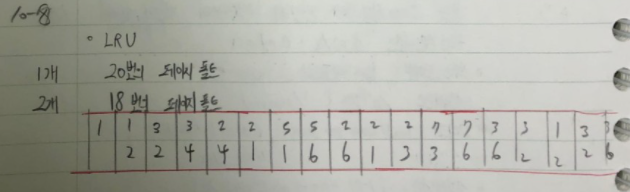 10-8
◦ LRU
1개 20번의 페이지 폴트
2개 18번의 페이지 폴트
1 1 3 3 2 2 5 5 2 2 2 7 7 3 3 1 3 3
2 2 4 4 1 1 6 6 1 3 3 6 6 2 2 2 6